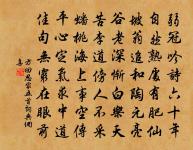 弱冠吟詩六十年
自然熟處有肥仙
坡翁追和陶元亮
谷老深慚白樂天
苦李道傍人不采
蟠桃海上事空傳
平心定氣求中道
佳句無窮在眼前